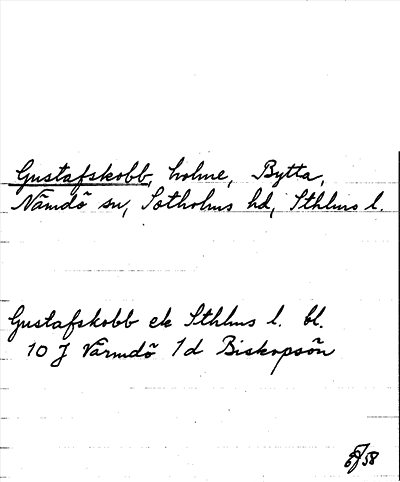 Gustafskobb, holme, Bytta,
Nämdö sn, Sotholms hd, Sthlms l.
Gustafskobb ek Sthlms l. bl.
10 J Värmdö 1d Biskopsön
58